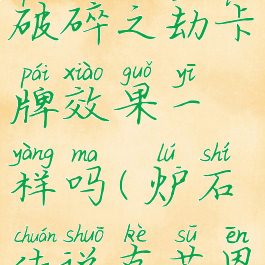 破碎之劫卡
pái xiào guǒ yī
牌效果一
yàng ma lú shí
样吗(炉石
chuán shuō kè sū ēn
传说克苏恩